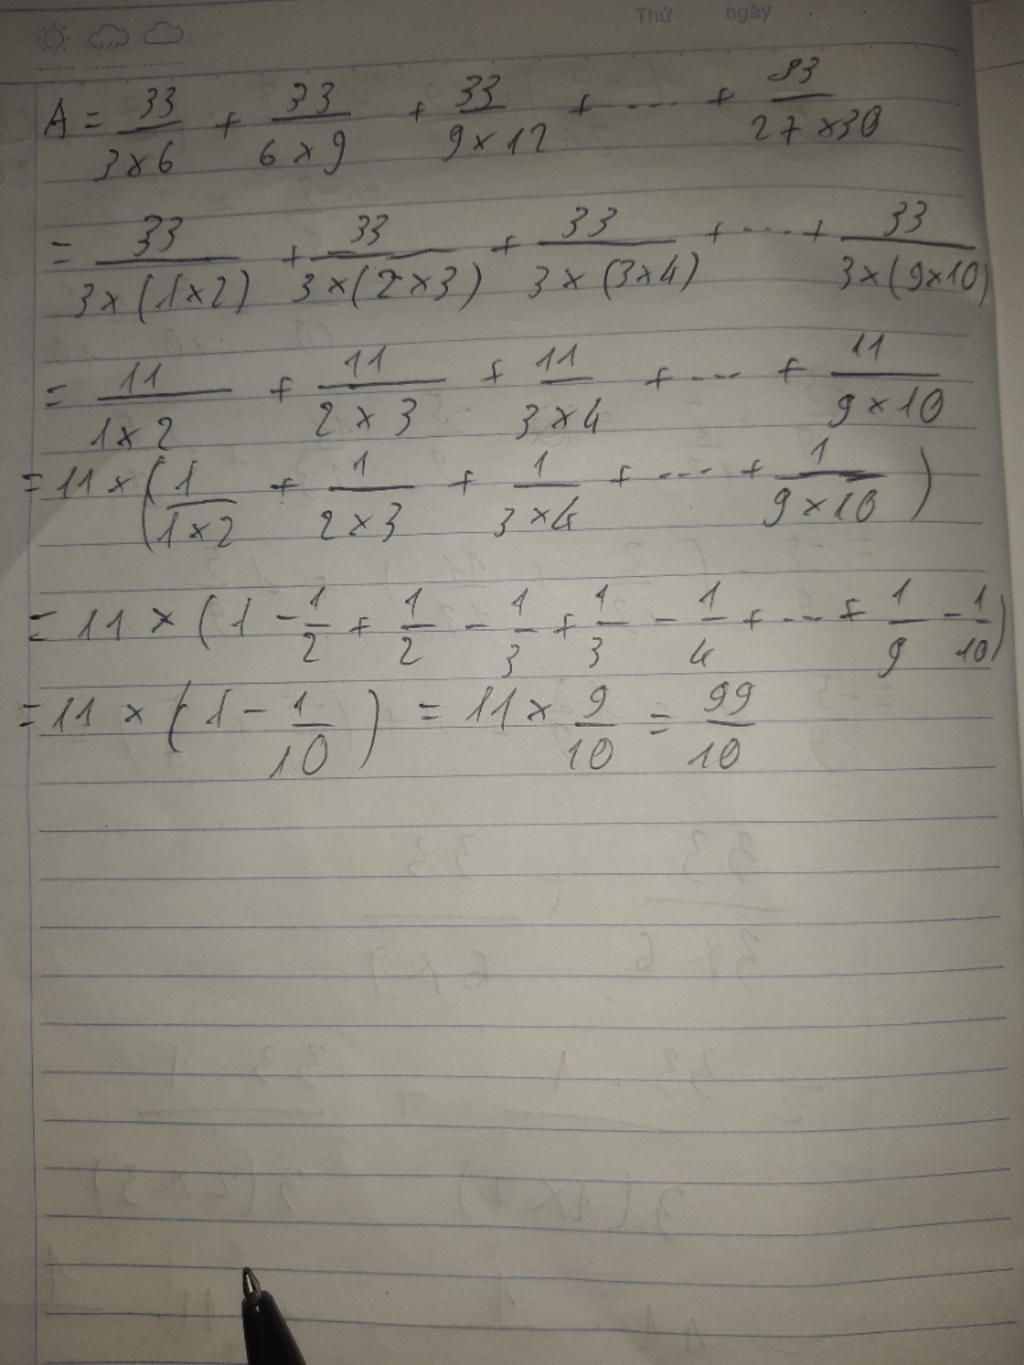 Thứ ngày
A = 33/(3×6) + 33/(6×9) + 33/(9×12) + ... + 33/(27×30)
= 33/(3×(1×2)) + 33/(3×(2×3)) + 33/(3×(3×4)) + ... + 33/(3×(9×10))
= 11/(1×2) + 11/(2×3) + 11/(3×4) + ... + 11/(9×10)
= 11 × (1/(1×2) + 1/(2×3) + 1/(3×4) + ... + 1/(9×10))
= 11 × (1 - 1/2 + 1/2 - 1/3 + 1/3 - 1/4 + ... + 1/9 - 1/10)
= 11 × (1 - 1/10) = 11 × 9/10 = 99/10